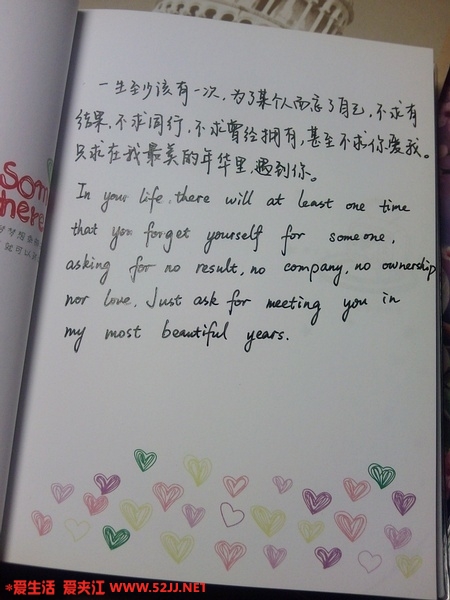 一生至少该有一次，为了某个人而忘了自己，不求有
结果，不求同行，不求曾经拥有，甚至不求你爱我。
只求在我最美的年华里，遇到你。
In your life, there will at least one time
that you forget yourself for someone,
asking for no result, no company, no ownership
nor love. Just ask for meeting you in
my most beautiful years.
som
here
*爱生活 爱夹江 WWW.52JJ.NET